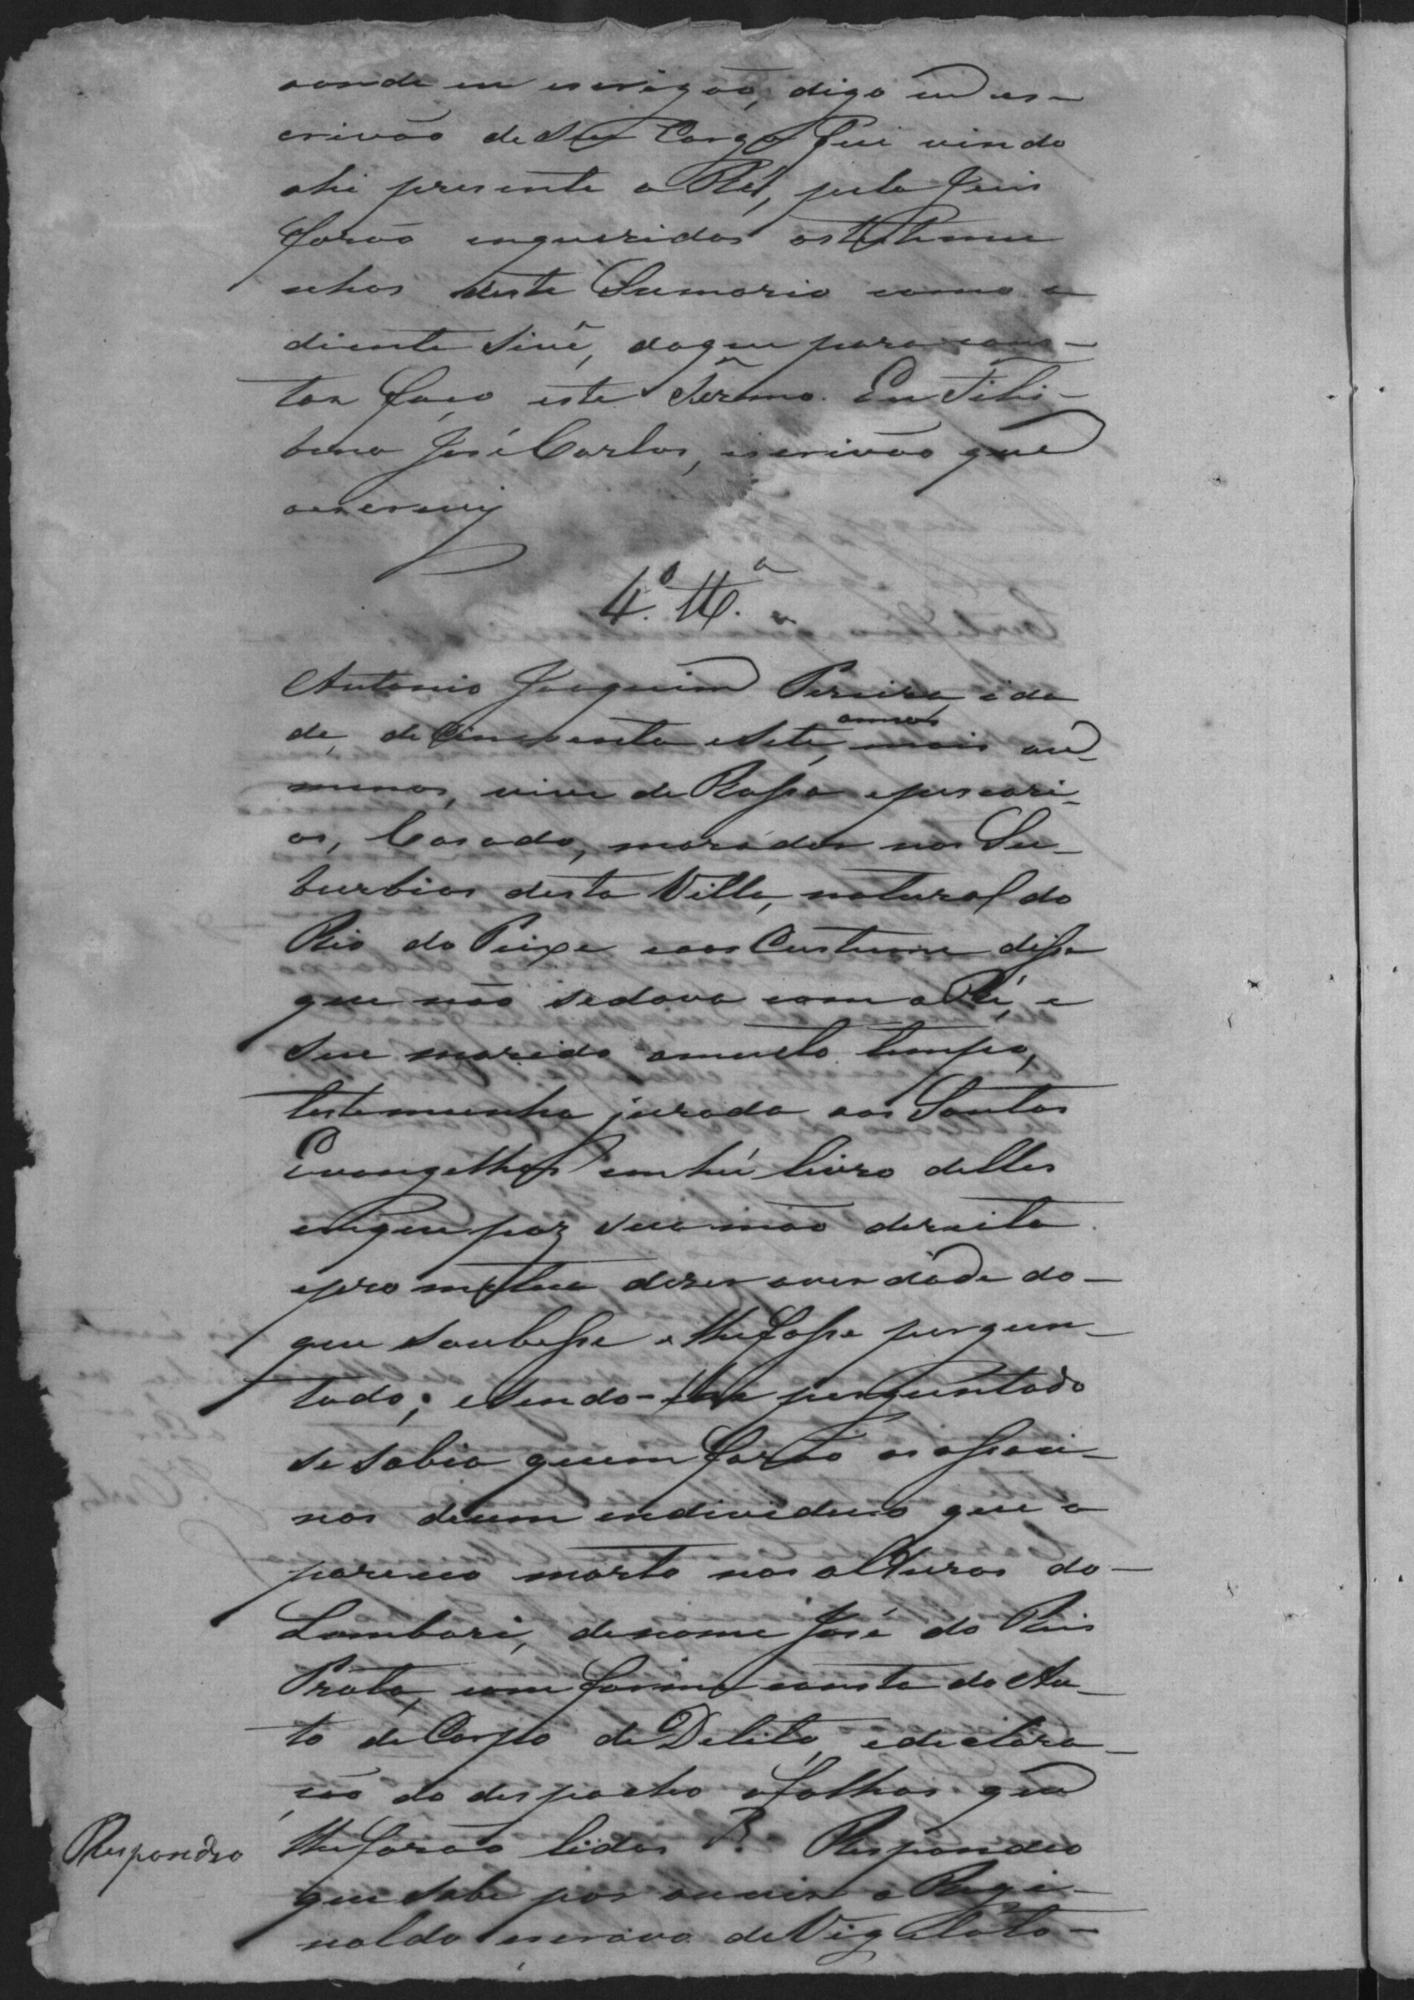 aonde eu escrição, digo eu es-
crivão de seu Cargo fui vindo
ahi presente a Ré, pelo Juis
forão inqueridas as testemu
nhas deste Sumario como a
diente se vê, do que para cons-
tar faço este termo. Eu Tibi-
burno José Carlos, escrivão que
o escrevy
4.ª Tt.ª
Antonio Joaquim Pereira, ida
de, de cincoenta e sete annos, mais ou
menos, vive de Rossa e pescari-
as, Casado, morador nos Su-
burbios desta Villa, natural do
Rio do Peixe e aos Custume disse
que não se dava com a Ré, e
seu marido a muito tempo,
testemunha jurada aos Santos
Evangelhos em hú livro delles
em que poz sua mão dereita
e prometeu dizer a verdade do-
que soubesse e lhe fosse pergun-
tado; e sendo-lhe perguntado
se sabia quem forão os assaci-
nos de um individuo que a
pareceo morto nas alturas do-
Lambari, de nome José do Reis
Prata, com forme consta do Au-
to de Corpo de Delito, e declara-
ção do despacho a folhas que
lhe forão lidas? Respondeo
Respondeo
que sabe por ouvir a Regi-
naldo escravo de